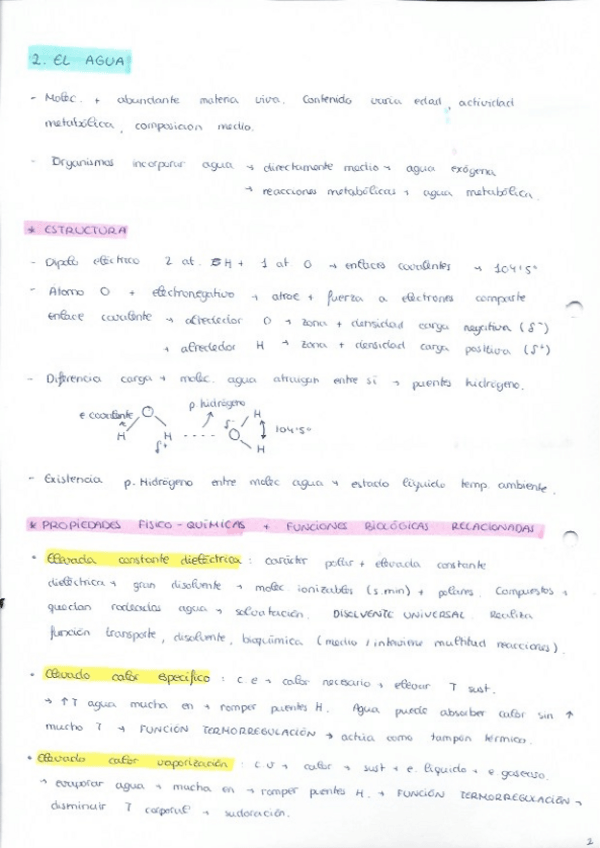 2. EL AGUA
- Moléc. + abundante materia viva. Contenido varía edad, actividad
metabólica, composición medio.
- Organismos incorporar agua → directamente medio → agua exógena
→ reacciones metabólicas → agua metabólica.
* ESTRUCTURA
- Dipolo eléctrico 2 at. H + 1 at O → enlaces covalentes → 104'5º
- Átomo O + electronegativo → atrae + fuerza a electrones comparte
enlace covalente → alrededor O → zona + densidad carga negativa (δ⁻)
→ alrededor H → zona + densidad carga positiva (δ⁺)
- Diferencia carga → moléc. agua atraigan entre sí → puentes hidrógeno.
e covalente O p. hidrógeno H
H H δ⁻ O 104'5º
δ⁺ H
- Existencia p. Hidrógeno entre moléc agua → estado líquido temp. ambiente.
* PROPIEDADES FÍSICO-QUÍMICAS + FUNCIONES BIOLÓGICAS RELACIONADAS
• Elevada constante dieléctrica: carácter polar + elevada constante
dieléctrica → gran disolvente → moléc ionizables (s.min) + polares. Compuestos →
quedan rodeados agua → solvatación. DISOLVENTE UNIVERSAL. Realiza
función transporte, disolvente, bioquímica (medio / interviene multitud reacciones).
• Elevado calor específico: c e → calor necesario → elevar T sust.
→ ↑T agua mucha en → romper puentes H. Agua puede absorber calor sin ↑
mucho T → FUNCIÓN TERMORREGULACIÓN → actúa como tampón térmico.
• Elevado calor vaporización: c.v → calor → sust → e. líquido → e gaseoso.
→ evaporar agua → mucha en → romper puentes H. → FUNCIÓN TERMORREGULACIÓN →
disminuir T corporal → sudoración.
2